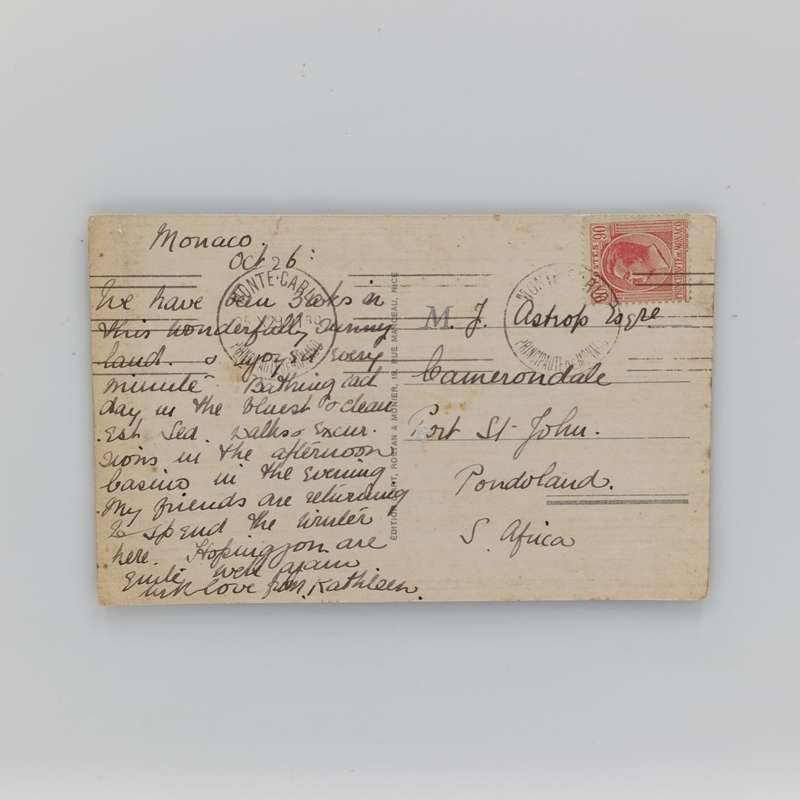 Monaco.
Oct 26.
We have been 3 weeks in
this wonderfully sunny
land. & enjoyed every
minute Bathing each
day in the bluest & clean
est Sea. Walks & Excur.
sions in the afternoon
Casino in the Evening
My friends are returning
to spend the winter
here. Hoping you are
quite well again
with love from Kathleen.
MONTE-CARLO
PRINCIPAUTÉ DE MONACO
ÉDITION ROSTAN & MUNIER, NICE
90
PRINCIPAUTÉ DE MONACO
MONTE-CARLO
PRINCIPAUTÉ DE MONACO
M. J. Astrop Esqre
Camerondale
Port St John.
Pondoland.
S. Africa